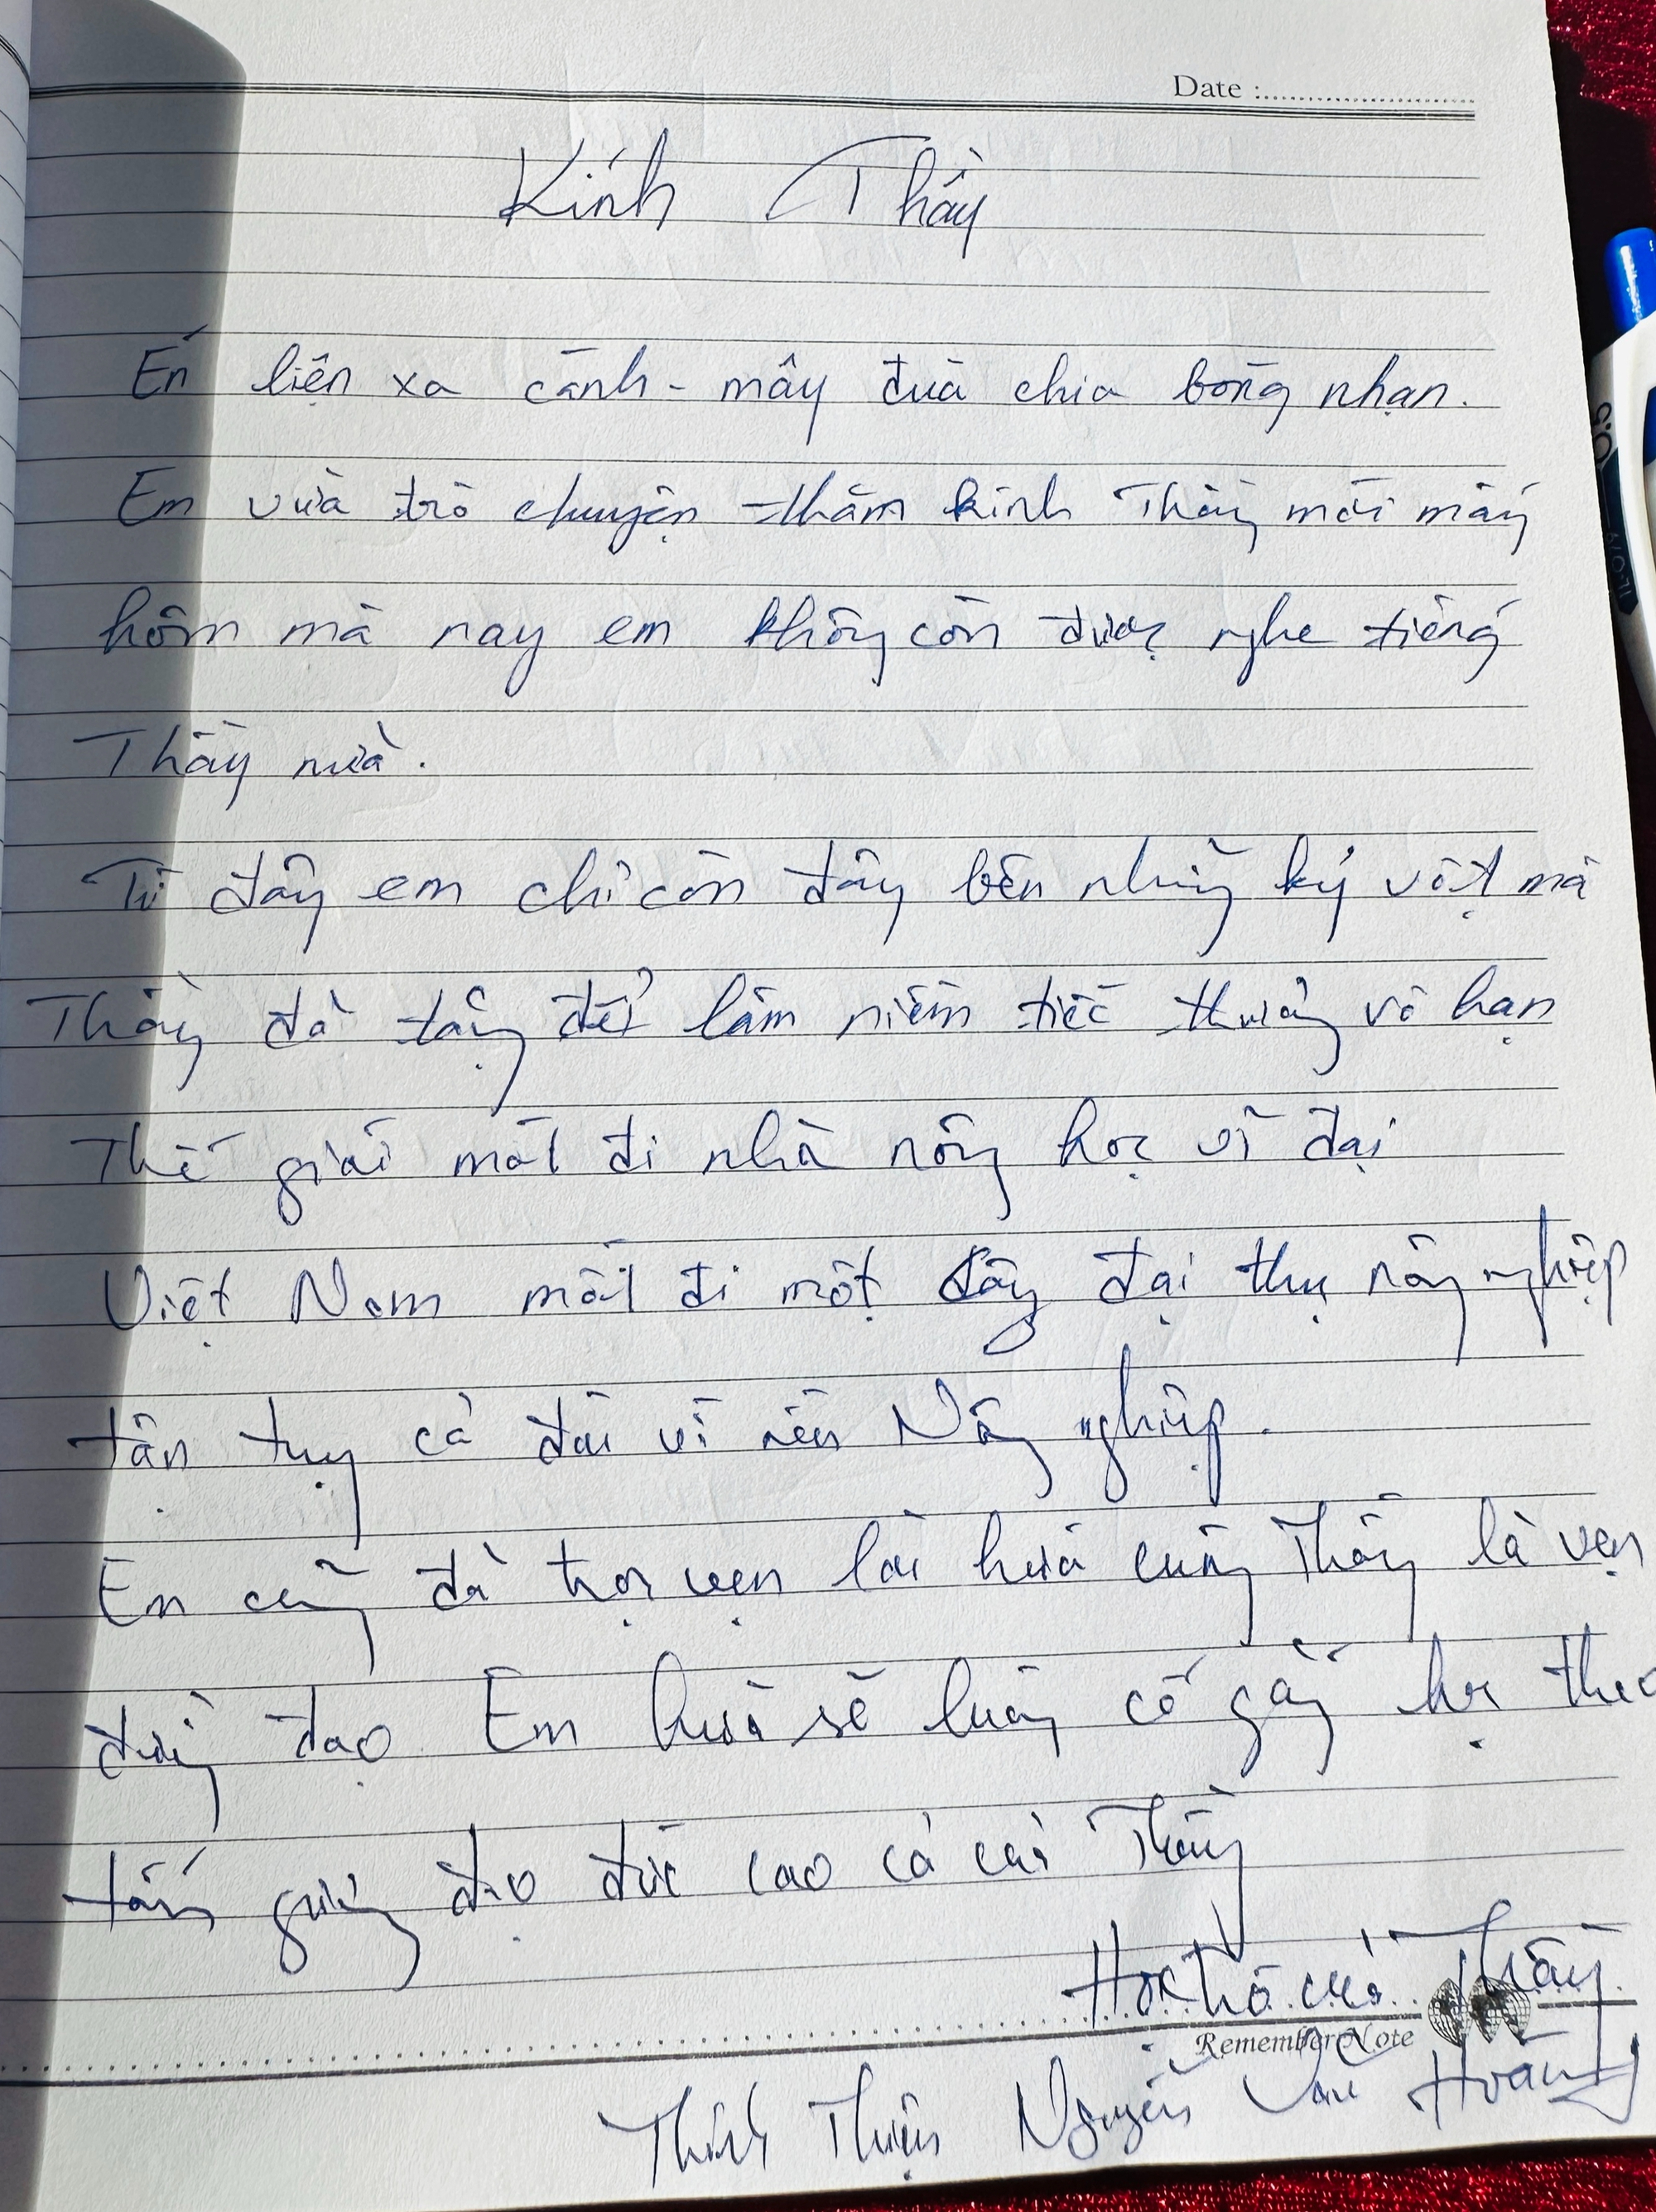 Date :
Kính Thầy
Én liện xa cành - mây đưa chia bóng nhạn.
Em vừa trò chuyện thăm kính Thầy mới mấy
hôm mà nay em không còn được nghe tiếng
Thầy nữa.
Từ đây em chỉ còn đây bên những kỷ vật mà
Thầy đã tặng để làm niềm tiếc thương vô hạn
Thế giới mất đi nhà nông học vĩ đại
Việt Nam mất đi một cây đại thụ nông nghiệp
tận tụy cả đời vì nền Nông nghiệp.
Em cũng đã trọn vẹn lời hứa cùng Thầy là vẹn
đường đạo. Em hứa sẽ luôn cố gắng học theo
tấm gương đạo đức cao cả của Thầy
Học trò của Thầy
Remember Note
Thính Thiện Nguyễn Văn Hoàng